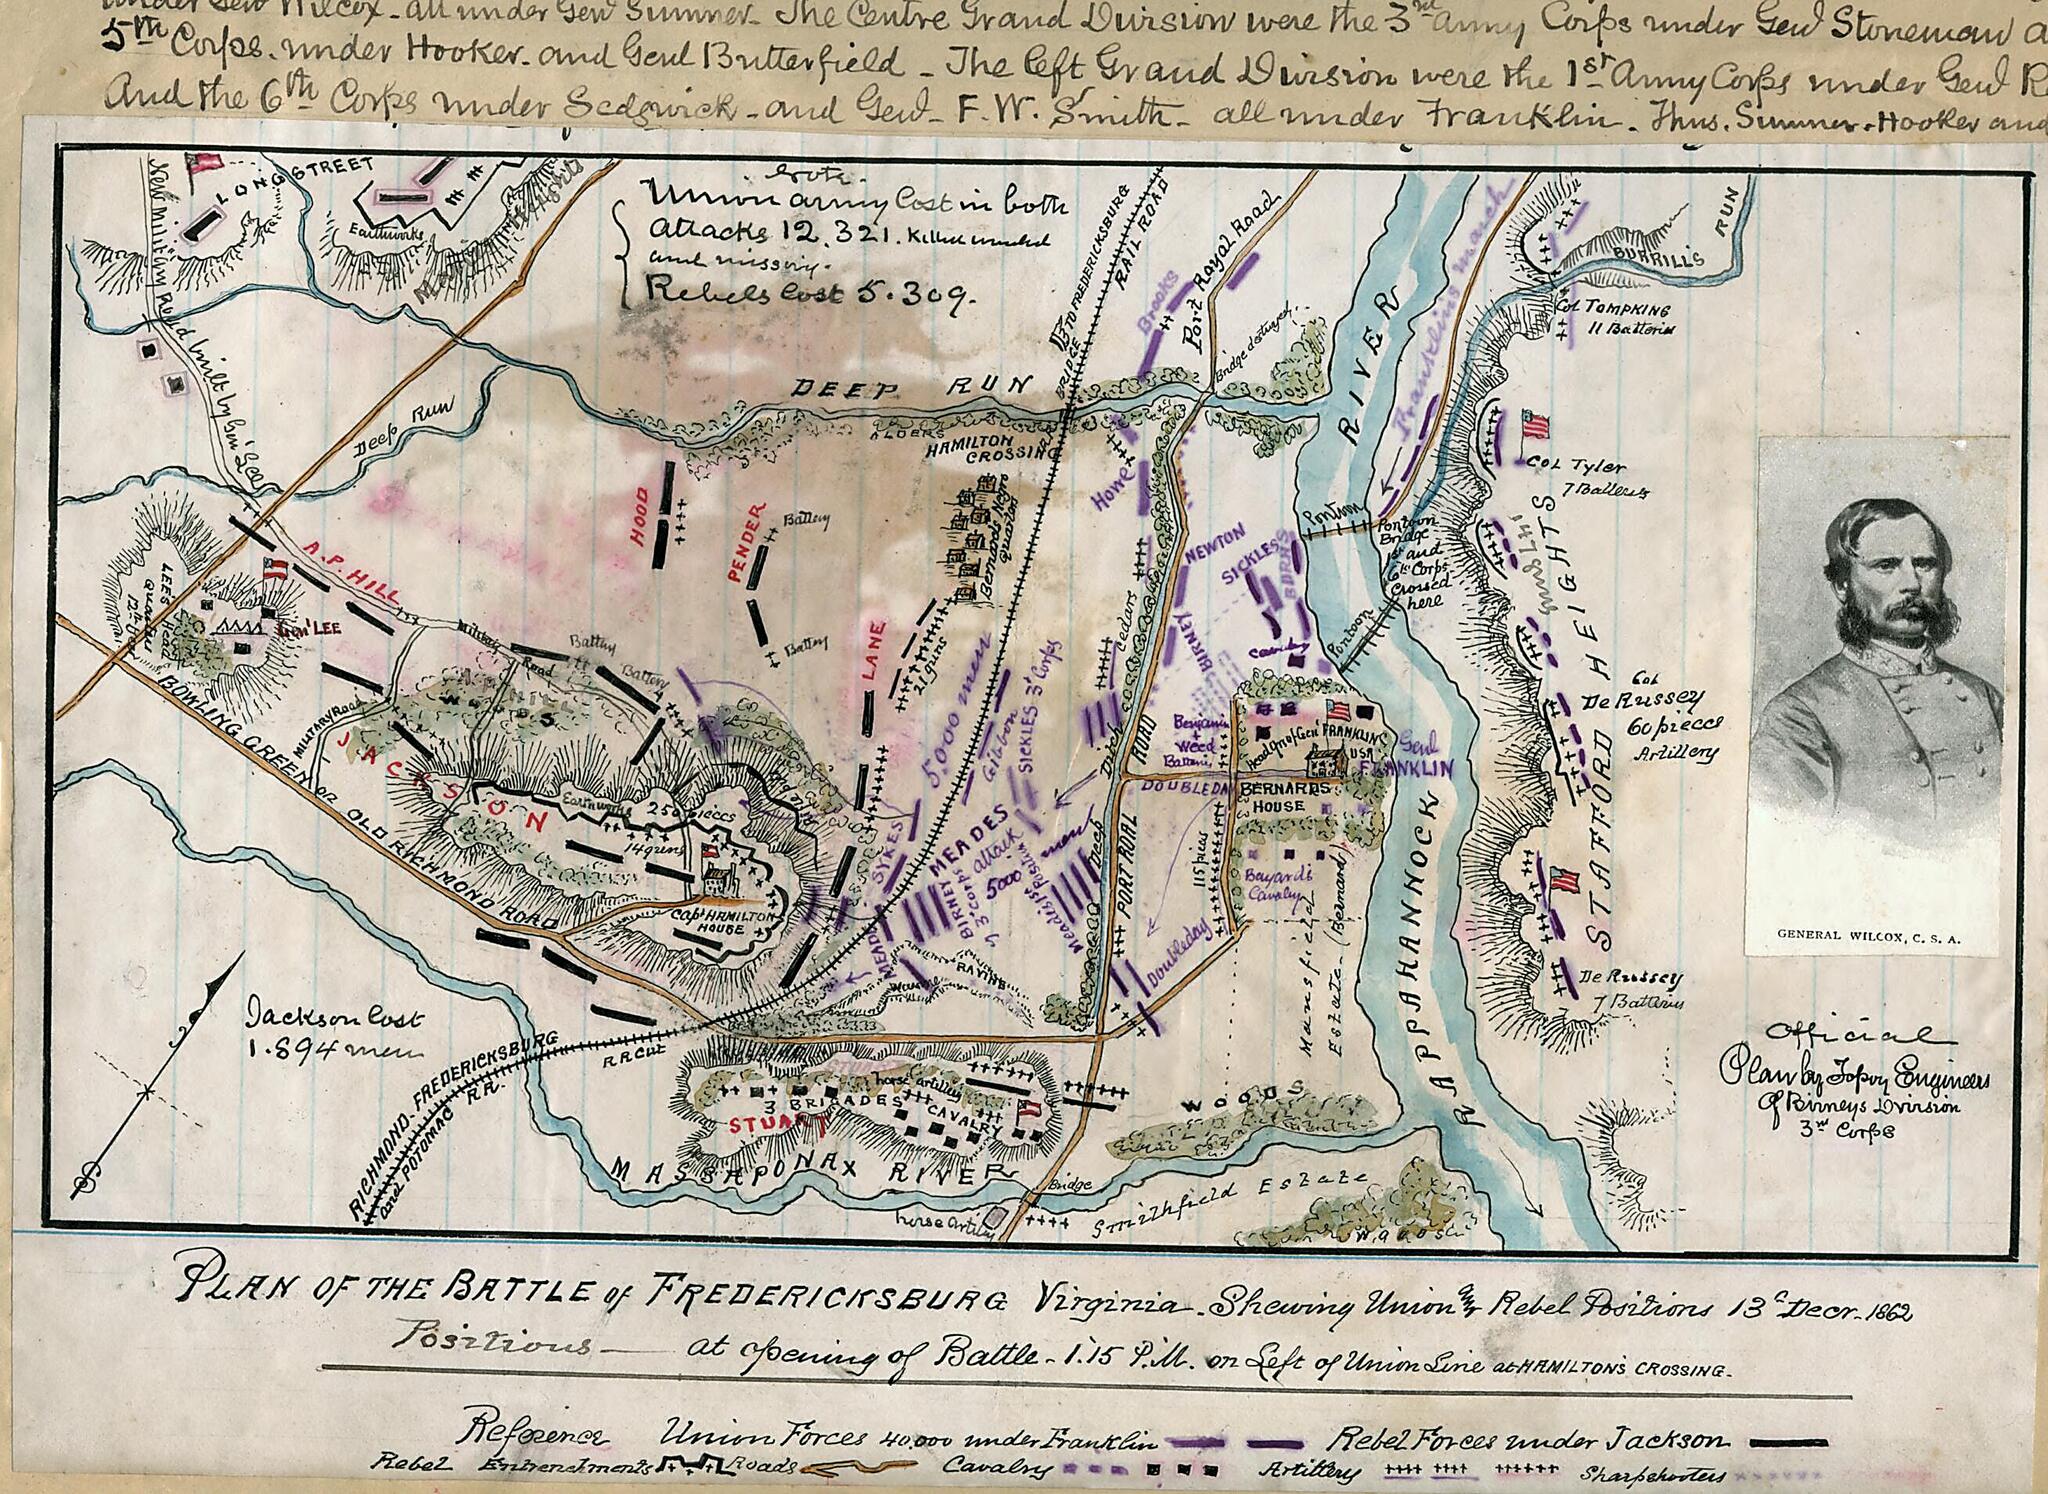 under Genl Wilcox - all under Genl Sumner - The Centre Grand Division were the 3rd Army Corps under Genl Stoneman
5th Corps. under Hooker - and Genl Butterfield - The left Grand Division were the 1st Army Corps under Genl
And the 6th Corps under Sedgwick - and Genl - F. W. Smith - all under Franklin - Thus. Sumner - Hooker and
LONGSTREET
Earthworks
Heights
New military Road built by Gen'l Lee
Note.
Union army Lost in both
attacks 12.321. Killed wounded
and missing.
Rebels Lost 5.309.
TO FREDERICKSBURG
RAIL ROAD
BRIDGE
Brooks
Port Royal Road
Bridge destroyed
RIVER
Franklins march
BURRILL'S RUN
Col TOMPKING
11 Batteries
DEEP RUN
Deep Run
ALDERS
HAMILTON
CROSSING
Howe
HOOD
PENDER
Battery
Battery
Bernards Negro
NEWTON
SICKLESS
BURNS
Pontoon
Pontoon
Bridge
1st and
6th Corps
Crossed
here
Pontoon
Col Tyler
7 Batterys
STAFFORD HEIGHTS
Col
De Russey
60 pieces
Artillery
De Russey
7 Batteries
GENERAL WILCOX, C. S. A.
A.P. HILL
LEES
Head
Gen'l LEE
Military Road
Battery
Battery
LANE
21 guns
5000 men
Gibbon
SICKLES 3d Corps
Cedars
BIRNEY
BIRNEY
Cavalry
Benjamin
+
Weed
Batteries
Head Qrs of Gen'l FRANKLIN
USA
Genl
FRANKLIN
DOUBLEDAY
BERNARDS
HOUSE
Bayards
Cavalry
115 pieces
Mansfield
Estate - (Bernard)
Ditch
ROAD
PORT ROIAL
Doubleday
MILITARY ROAD
WOODS
JACKSON
Earthworks 25 pieces
14 guns
Rifle Pits
Capt HAMILTON
HOUSE
BOWLING GREEN OR OLD RICHMOND ROAD
SYKES
MEADES
attack
5000 men
BIRNEY
3d Corps
Meades 1st Position
MEADE
RAVINE
Jackson Lost
1.894 men
RICHMOND. FREDERICKSBURG
and POTOMAC R.R.
R.R. Cut
horse artillery
3 BRIGADES CAVALRY
STUART
MASSAPONAX RIVER
Bridge
horse artily
WOODS
Smithfield Estate
Woods
RAPPAHANNOCK
Official
Plan by Topoy Engineers
Of Birneys Division
3rd Corps
PLAN OF THE BATTLE of FREDERICKSBURG Virginia - Shewing Union and Rebel Positions 13th Decr. 1862
Positions — at opening of Battle - 1.15 P.M. on Left of Union Line at HAMILTON'S CROSSING -
Reference Union Forces 40,000 under Franklin Rebel Forces under Jackson
Rebel Entrenchments Roads Cavalry Artillery Sharpshooters